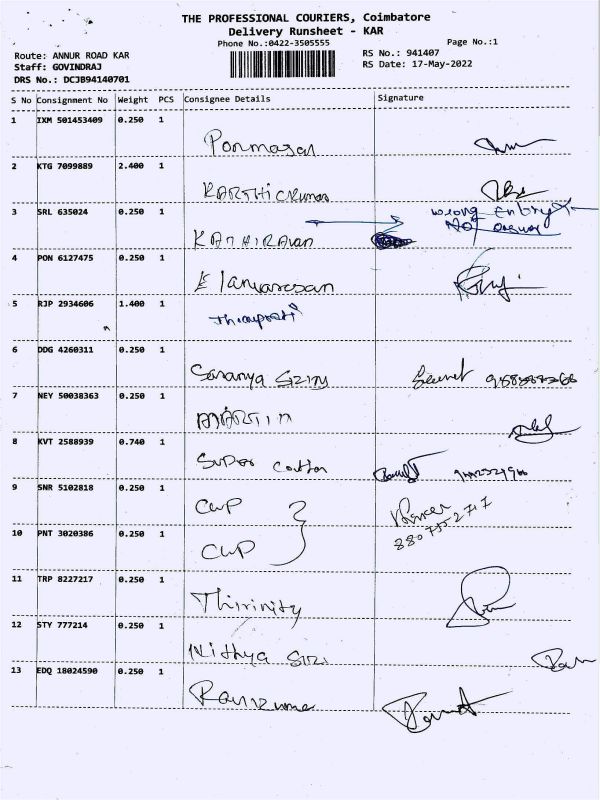 THE PROFESSIONAL COURIERS, Coimbatore
Delivery Runsheet - KAR
Phone No.:0422-3505555
Page No.:1
Route: ANNUR ROAD KAR
Staff: GOVINDRAJ
DRS No.: DCJB94140701
RS No.: 941407
RS Date: 17-May-2022
S No Consignment No Weight PCS Consignee Details Signature
1 IXM 501453409 0.250 1
Ponmagan
2 KTG 7099889 2.400 1
KARTHICKumar
3 SRL 635024 0.250 1
wrong Entry
Not
KATHIRAvan
4 PON 6127475 0.250 1
5 RJP 2934606 1.400 1
6 DDG 4260311 0.250 1
Saranya
7 NEY 50038363 0.250 1
MARTIN
8 KVT 2588939 0.740 1
Super Cotton
9 SNR 5102818 0.250 1
CUP
8807552717
10 PNT 3020386 0.250 1
CUP
11 TRP 8227217 0.250 1
Thirinity
12 STY 777214 0.250 1
Nithya
13 EDQ 18024590 0.250 1